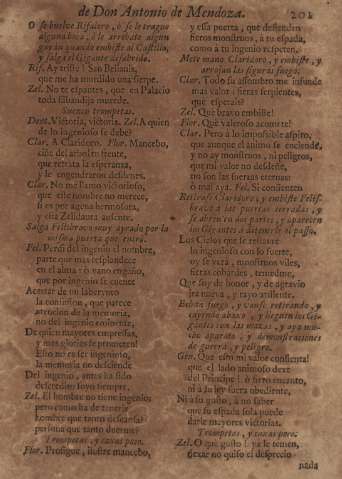 de Don Antonio de Mendoza. 201
O se buelve Rifaloro, ò se le trague
alguna boca, ò le arrebate algun
gar su quando embiste al Castillo,
y salga el Gigante
Rif. Ay triste! San Belianis,
que me ha mordido una sierpe.
Zel. No te espantes, que en Palacio
toda sabandija muerde.
Suenan trompetas.
Dent. Victoria, victoria. Zel. A quien
de lo ingenioso se debe?
Clar. A Claridoro. Flor. Mancebo,
ciñe del arbol tu frente,
que retrata la esperanza,
y le engendraron desdenes.
Clar. No me llamo victorioso,
que esse nombre no merece,
si es por agena hermosura,
y está Zelidaura ausente.
Salga Felisbravo muy ayrado por la
misma puerta que entrò.
Fel. Perdi del ingenio el nombre,
parte que mas resplandece
en el alma: ò vano engaño,
que por ingenio se cuente
Acertar de un laberynto
la confusion, que parece
atencion de la memoria,
no del ingenio eminente,
De quien mayores empressas,
y mas glorias se prometen!
Esso no es ser ingenioso,
la memoria no desciende
Del ingenio, antes ha sido
defectillo suyo siempre.
Zel. El hombre no tiene ingenio;
pero como ha de tenerle
hombre que tanto descansa?
persona que tanto duerme?
Trompetas, y caxas passan.
Flor. Prosigue, ilustre mancebo,
y essa puerta, que defienden
fieros monstruos, à tu espada,
como à tu ingenio respeten.
Mete mano Claridoro, y embiste, y
arrojan las figuras fuego.
Clar. Todo su assombro me infunde
mas valor: fieras serpientes,
que esperais?
Zel. Que bravo embiste!
Flor. Què valeroso acomete!
Clar. Pero à lo impossible aspiro,
que aunque el animo se enciende,
y no ay monstruos, ni peligros,
que mi valor no desdeñe,
no son las fuerzas eternas:
ò mal aya. Fel. Si consienten
Retirase Claridoro, y embiste Felisbravo
à las puertas cerradas, y
se abren en dos partes, y aparecen
los Gigantes à defenderle el passo.
Los Cielos que se restaure
lo ingenioso con lo fuerte,
oy se verà, monstruos viles,
fieras cobardes, tenedme,
Que soy de honor, y de agravio
ira nueva, y rayo ardiente.
Echan fuego, y vanse retirando, y
cayendo abaxo, y lleguen los Gigantes
con las mazas, y aya mucho
aparato, y demonstraciones
de guerra, y peligro.
Gen. Que esto mi valor consienta!
que el lado animoso dexe
del Principe! ò fiero encanto,
ni à la ley fuera obediente,
Ni à su gusto, à no saber
que su espada sola puede
darle mayores victorias.
Trompetas, y caxas paren.
Zel. O que gusto si ya le temen,
dexar no quiso el desprecio
nada